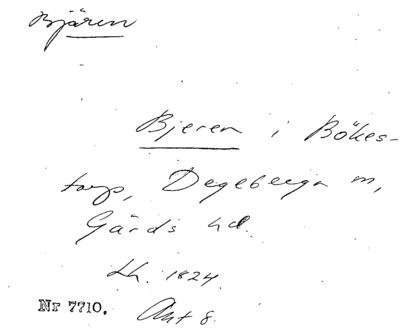 Bjären
Bjeren i Bökes-
torp, Degeberga sn,
Gärds hd.
Lh. 1824
Nr 7710. Akt 8.